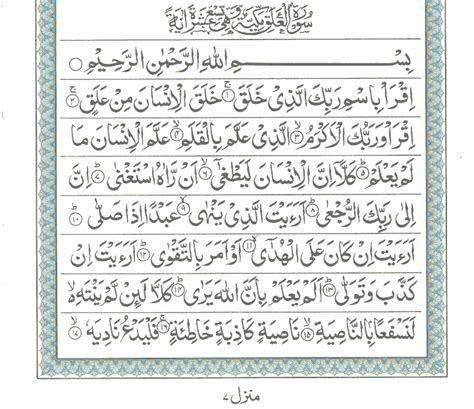 سورة العلق مكية وهى تسع عشرة اية
بِسْمِ اللهِ الرَّحْمٰنِ الرَّحِيْمِ ○
اِقْرَاْ بِاسْمِ رَبِّكَ الَّذِىْ خَلَقَ ۚ‏﴿۱﴾ خَلَقَ الْاِنْسَانَ مِنْ عَلَقٍ‌ ۚ‏﴿۲﴾
اِقْرَاْ وَرَبُّكَ الْاَكْرَمُ ۙ‏﴿۳﴾ الَّذِىْ عَلَّمَ بِالْقَلَمِ ۙ‏﴿۴﴾ عَلَّمَ الْاِنْسَانَ مَا
لَمْ يَعْلَمْ ؕ‏﴿۵﴾ كَلَّاۤ اِنَّ الْاِنْسَانَ لَيَطْغٰٓى ۙ‏﴿۶﴾ اَنْ رَّاٰهُ اسْتَغْنٰى ؕ‏﴿۷﴾ اِنَّ
اِلٰى رَبِّكَ الرُّجْعٰى ؕ‏﴿۸﴾ اَرَءَيْتَ الَّذِىْ يَنْهٰى ۙ‏﴿۹﴾ عَبْدًا اِذَا صَلّٰى ؕ‏﴿۱۰﴾
اَرَءَيْتَ اِنْ كَانَ عَلَى الْهُدٰٓى ۙ‏﴿۱۱﴾ اَوْ اَمَرَ بِالتَّقْوٰى ؕ‏﴿۱۲﴾ اَرَءَيْتَ اِنْ
كَذَّبَ وَتَوَلّٰى ؕ‏﴿۱۳﴾ اَلَمْ يَعْلَمْ بِاَنَّ اللهَ يَرٰى ؕ‏﴿۱۴﴾ كَلَّا لَئِنْ لَّمْ يَنْتَهِ ۙ
لَنَسْفَعًۢا بِالنَّاصِيَةِ ۙ‏﴿۱۵﴾ نَاصِيَةٍ كَاذِبَةٍ خَاطِئَةٍ‌ ۚ‏﴿۱۶﴾ فَلْيَدْعُ نَادِيَهٗ ۙ‏﴿۱۷﴾
منزل ۷